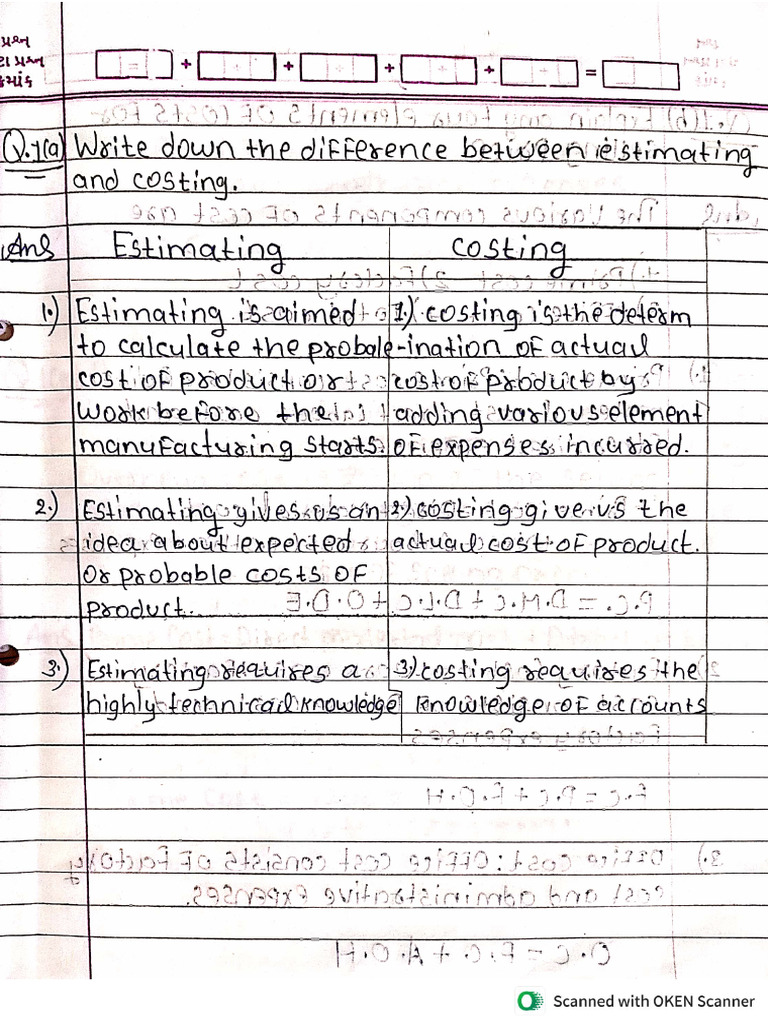 પ્રશ્ન
ટા પ્રશ્ન
ક્રમાંક
+ + + + =
Q.1(a) Write down the difference between estimating
and costing.
Ans Estimating costing
1.) Estimating is aimed 1.) costing is the determ
to calculate the probale -ination of actual
cost of product or cost of product by
work before the adding various element
manufacturing starts. of expenses incurred.
2.) Estimating gives us an 2.) costing give us the
idea about expected actual cost of product.
or probable costs of
product.
3.) Estimating requires a 3.) costing requires the
highly technical knowledge knowledge of accounts
Scanned with OKEN Scanner